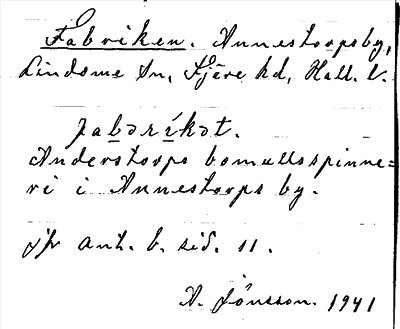 Fabriken. Annestorpsby,
Lindome sn, Fjäre hd, Hall. l.
fabəríkət.
Anderstorps bomullsspinne=
ri i Annestorps by.
jfr ant. b. sid. 11.
A. Jönsson. 1941